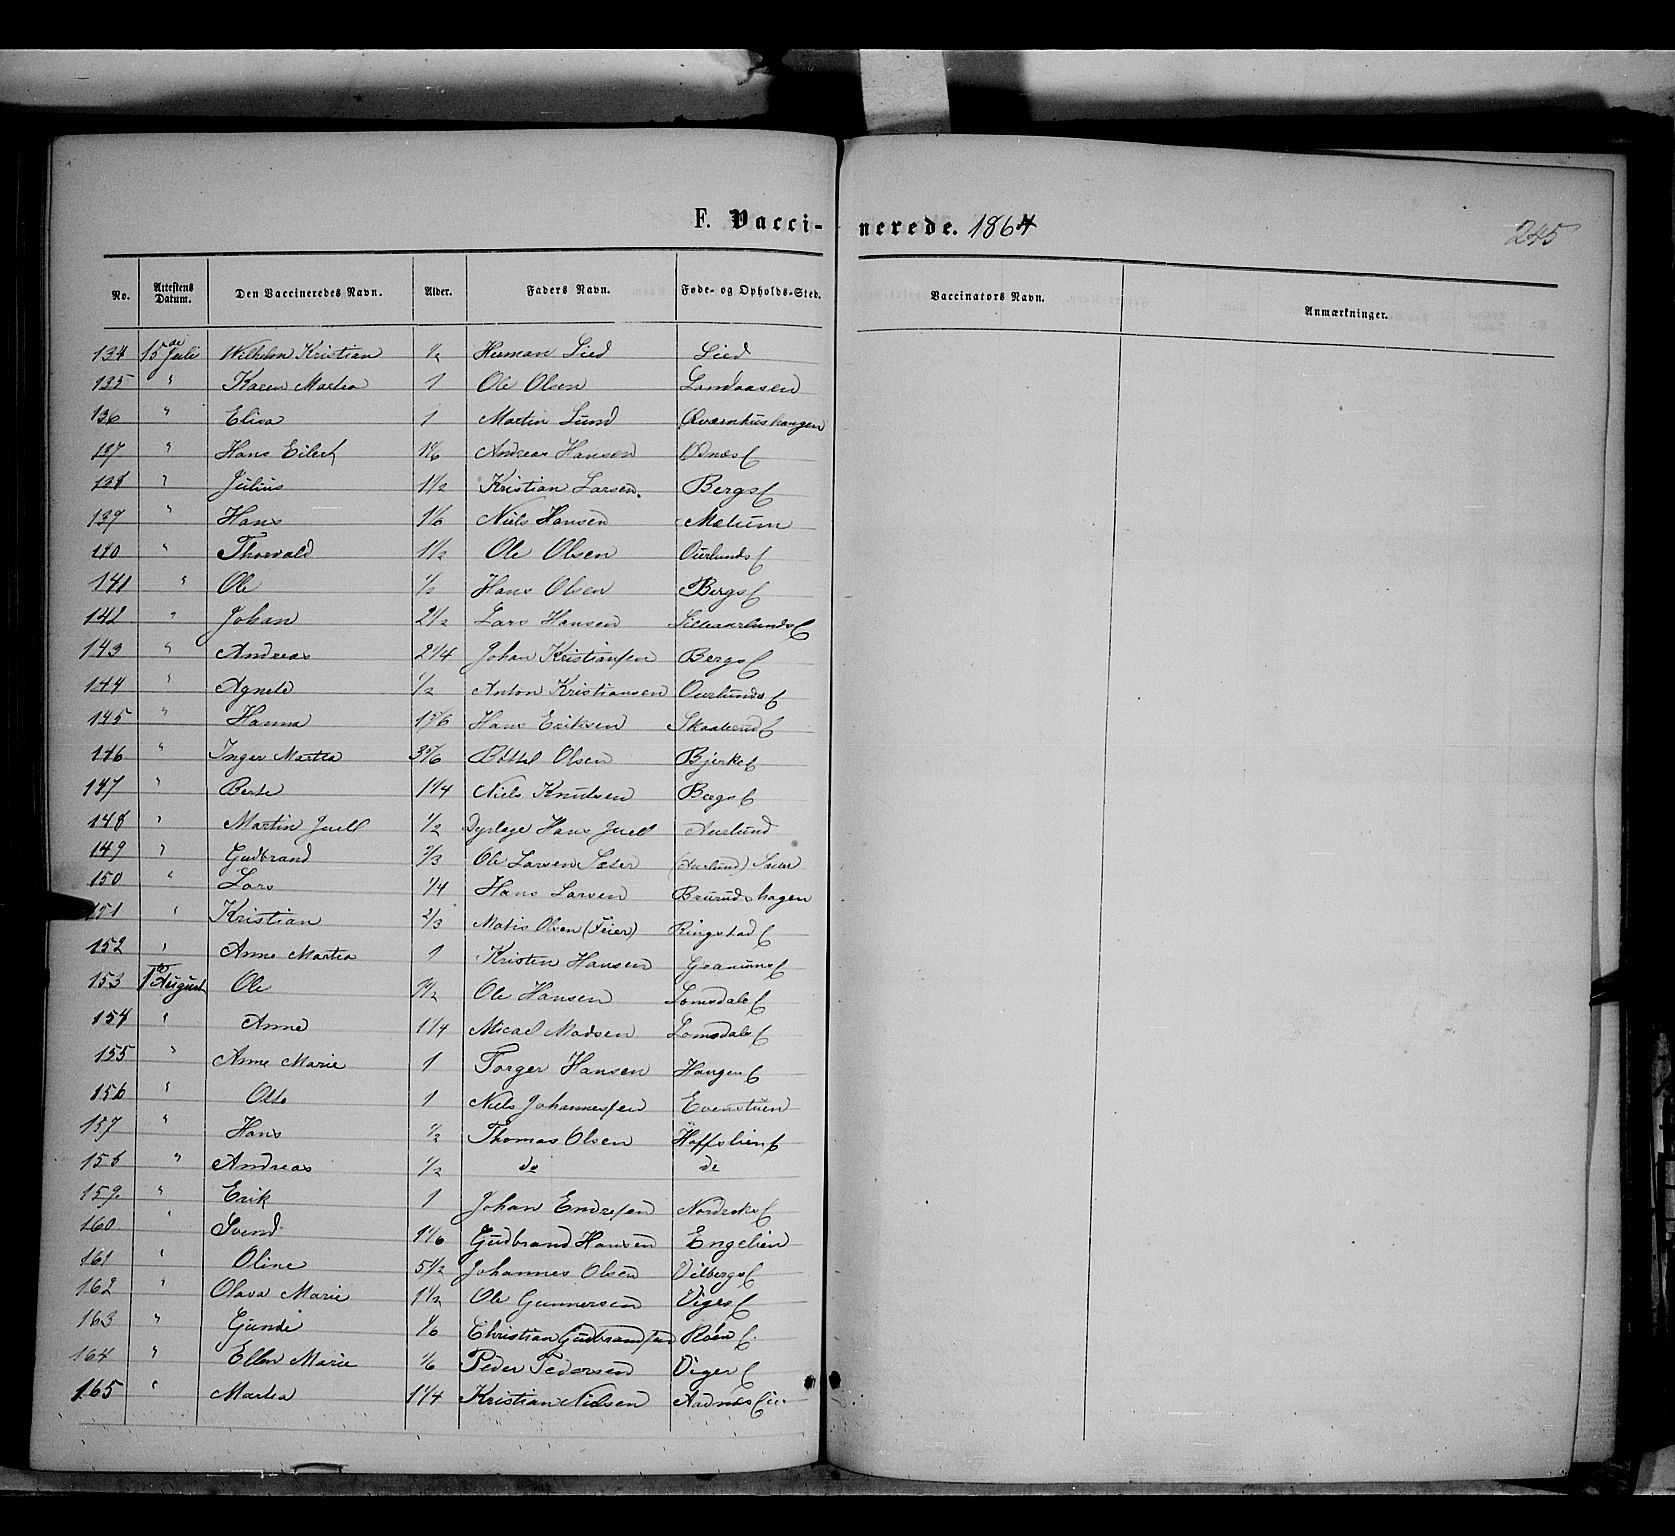 F. Vacci- nerede. 1864
245
No. Attestens Datum. Den Vaccineredes Navn. Alder. Faders Navn. Føde- og Opholds-Sted. Vaccinators Navn. Anmærkninger.
134 15de Juli Wilhelm Kristian 1/2 Herman Lied Lied
135 " Karen Martea 1 Ole Olsen Landaasen
136 " Elisa 1 Martin Lund Qværnhushaugen
137 " Hans Eilert 1 1/6 Andreas Hansen Odnæs
138 " Julius 1 1/2 Kristian Larsen Bergs
139 " Hans 1 1/6 Niels Hansen Mælum
140 " Thorvald 1 1/2 Ole Olsen Ourlunds
141 " Ole 1/2 Hans Olsen Bergs
142 " Johan 2 1/2 Lars Hansen
143 " Andreas 2 1/4 Johan Kristiansen Bergs
144 " Agnete 1/2 Anton Kristiansen Ourlunds
145 " Hanna 1 5/6 Hans Eriksen
146 " Inger Martea 3 5/6 Bottel Olsen Bjerke
147 " Berte 1 1/4 Niels Knudsen Bergs
148 " Martin Juell 1/2 Dyrlæge Hans Juell Aurlund
149 " Gudbrand 2/3 Ole Larsen Sæter (Aurlund) Sæter
150 " Lars 1/4 Hans Larsen Brurudshagen
151 " Kristian 2/3 Mathis Olsen (Feier) Ringstad
152 " Anne Martea 1 Kristen Hansen Granums
153 1te August Ole 1/2 Ole Hansen Lomsdals
154 " Anne 1 1/4 Micael Madsen Lomsdals
155 " Anne Marie 1 Torger Hansen Haugen
156 " Otto 1 Niels Johannessen Evenstuen
157 " Hans 1/2 Thomas Olsen Hoffslien
158 " Andreas 1/2 do do
159. " Erik 1 Johan Endresen Nordraks
160 " Svend 1 1/6 Gudbrand Hansen Engelien
161 " Oline 5 1/2 Johannes Olsen Vilbergs
162 " Olava Marie 1 1/2 Ole Gunnersen Viges
163 " Gunde 1/6 Christian Gudbrandsen Roen
164 " Ellen Marie 1/6 Peder Pedersen Viger
165 " Martea 1 1/4 Kristian Nielsen